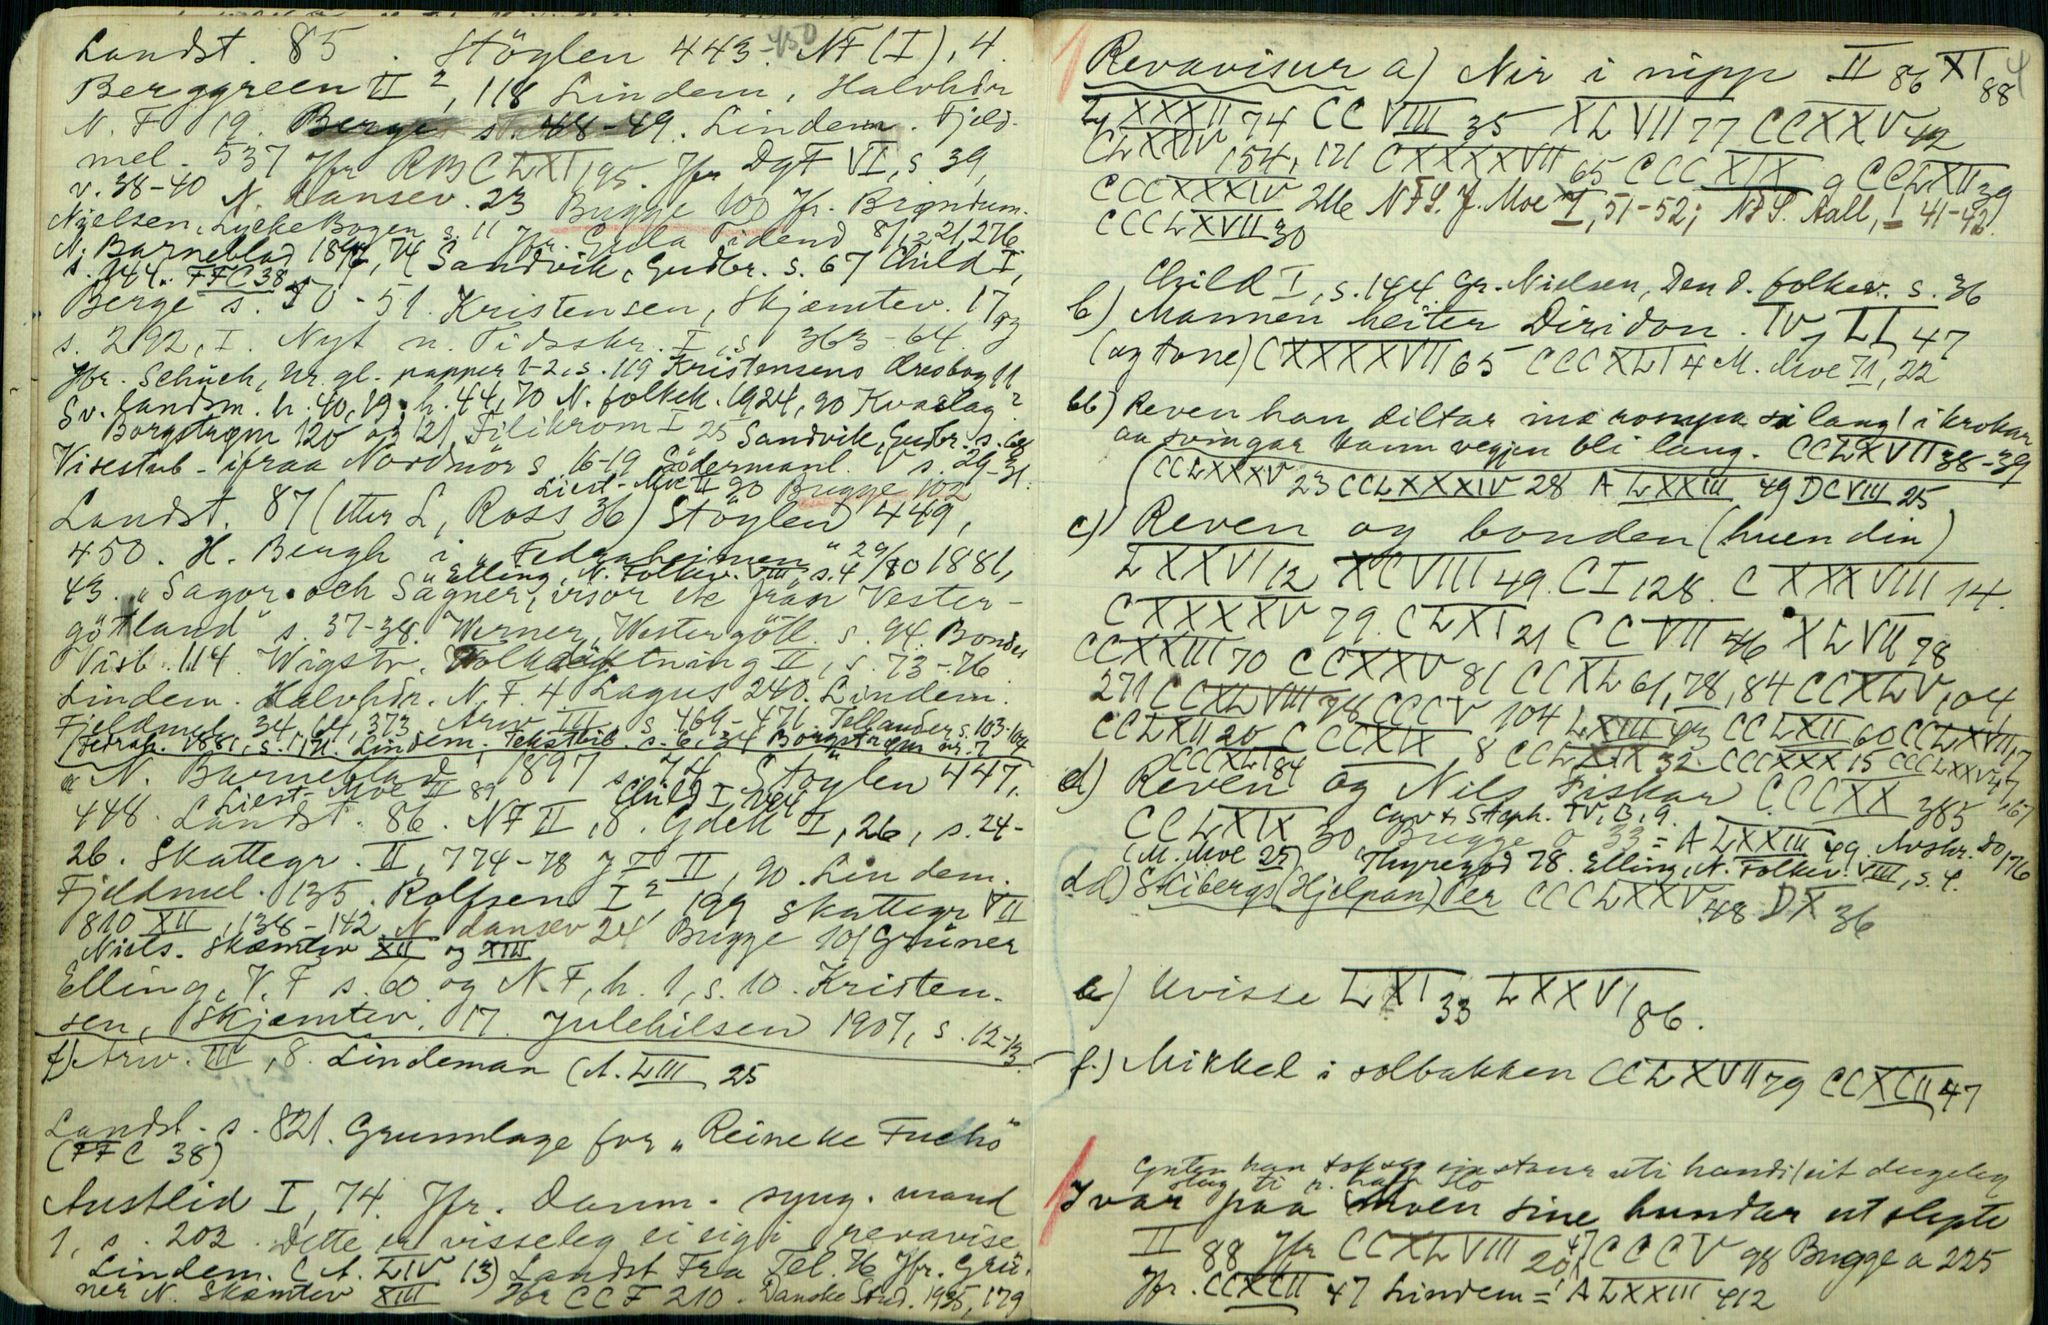 Landst. 85. Stöylen 443-450 NF (I), 4.
Berggreen II 2, 118 Lindem, Halvhdr
N. F 19. Berge s. 48-49. Lindem. Fjeld-
mel. 537 Jfr RB CLXI, 95. Jfr DgF VI, s 39,
v. 38-40 N. dansev. 23 Bugge 100 Jfr. Brøndum-
Njelsen, Lykke Bogen s. 11 Jfr. Grela 81, 221, 276
N. Barneblad 1897, 74 Sandvik, Gudbr. s. 67 Child I,
s. 144. FFC 38
Berge s. 50-51. Kristensen, Skjæmtev. 17 og
s. 292, I. Nyt n. Tidsskr. I, s 363-64.
Jfr. Schück, Ur gl. papper 1-2, s. 119 Kristensens Øresbog 11
Sv. landsm. h. 40, 19, h. 44, 70 N. folkek. 1924, 90
Borgstrøm 120 og 121, Filikrom I 25 Sandvik, Gudbr. s. 68
Visestub - ifraa Nordmör s. 16-19 Södermanl. V s. 29-31.
Liest.-Moe II 90 Bugge 102
Landst. 87 (etter L, Ross 36) Stöylen 449,
450. H. Bergh i "Fedraheimen" 29/10 1881,
Elling, N. Folkev. VIII, s. 4
43. "Sagor och Sägner, visor etc från Vester-
götland" s. 37-38. Werner, Westergötl. s. 94. Bondes
Visb. 114. Wigstr. Folkdiktning II, s. 73-76
Lindem. Halvhdr. N. F. 4 Lagus 240. Lindem.
Fjeldmel. 34, 64, 373 Arw. III s. 469-471. Tellander s. 103-104
(Fedrah. 1881, s. 171. Lindem. Tekstbib. s. 6, 34 Borgstrøm nr. 7
N. Barneblad 1897 s. 74 Stöylen 447,
Liest-Moe II 89 Child I 144
448. Landst. 86. NF II, 8. Gdch I, 26, s. 24-
26. Skattegr. II, 774-78 II, 90. Lindem.
Fjeldmel. 135. Rolfsen I 2, 199 Skattegr VII
810 XII, 138-142 N dansev 24 Bugge 101 Grüner
Niels. Skæmtev XII og XIII
Elling, V. F s. 60 og N. F, h. 1, s. 10. Kristen-
sen, Skjæmtev. 17. Julehilsen 1907, s. 12-13
f) Arw. III, 8. Lindeman (A. LIII 25
Landst. s. 821. Grunnlage for "Reineke Fuchs"
(FFC 38)
Austlid I, 74. Jfr. Danm. syng. mand
1, s. 202. Dette er visseleg ei eigi revavise
Lindem. (A. LIV 13) Landst Fra Tel. 76 Jfr. Grü-
ner N. Skæmtev XIII Jfr CCF 210. Danske Stud. 1925, 179
4
Revavisur a) Nir i nipp II 86 XI 88
LXXXII 74 CCVIII 35 XLVII 77 CCXXV 42
CLXXIV 154, 121 CXXXXVII 65 CCCXIX 9 CCLXII 39
CCCXXXIV 216 NFS. J. Moe I, 51-52; NFS. Aall, I 41-42.
CCCLXVII 30
Child I, s. 144. Gr. Nielsen, Den d. folkev. s. 36
b) Mannen heiter Diridon. IV, LI, 47
(og tone) CXXXXVII 65 CCCXLI 4 M. Moe 71, 22
bb) Reven han diltar mæ rompa si lang / i krokar
aa svingar kann vegjen bli lang. CCLXVII 38-39
CCLXXXV 23 CCLXXXIV 28 A LXXIII 49 DCVIII 25
c) Reven og bonden (huen din)
LXXVI 12 XCVIII 49. CI 128. CXXXVIII 14.
CXXXXV 79. CLXI 21 CCVII 46 XLVII 78
CCXXIII 70 CCXXV 81 CCXL 61, 78, 84 CCXLV, 04,
271 CCXLVIII 98 CCCV 104 LXIII 43 CCLXII 60 CCLXVII, 17
CCLXII 20 CCCXIX 8 CCLXIX 32 CCCXXX 15 CCCLXXV 47
CCCXLI 84 , 67
d) Reven og Nils Fiskar CCCXX 385
Cav & Steph. IV, B, 9.
CCLXIX 30 Bugge σ 33 = A LXXIII 49 Avskr. DO 176
(M. Moe 25) Thyregod 78. Elling, N. Folkev. VIII, s. 4.
dd) Skibergs (Hjelpan) Per CCCLXXV 48 DX 36
e) Uvisse LXI 33 LXXVI 86.
f.) Mikkel i solbakken CCLXVII 79 CCXCII 47
Guten han tok seg ein staur uti handi / eit dugeleg
slag ti n. haff slo
Ivar paa moen sine hundar ut slepte
II 88 Jfr CCXLVIII 20, 47 CCCV 98 Bugge a 225
Jfr. CCXCII 47 Lindem = A LXXIII 412